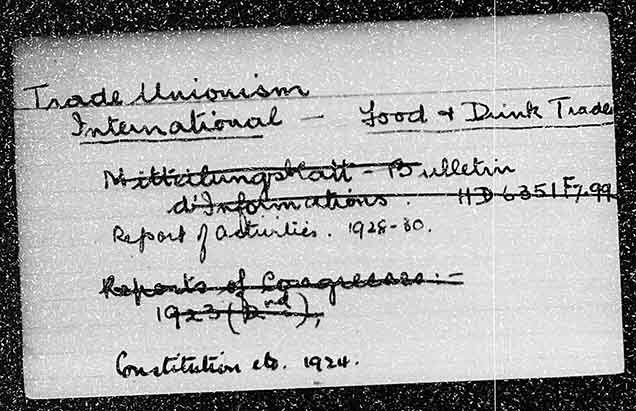 Trade Unionism
International - Food & Drink Trade
Mitteilungsblatt - Bulletin
d'Informations. HD 6351 F7.99
Report of activities. 1928-30.
Reports of Congresses:-
1923 (2nd),
Constitution etc. 1924.